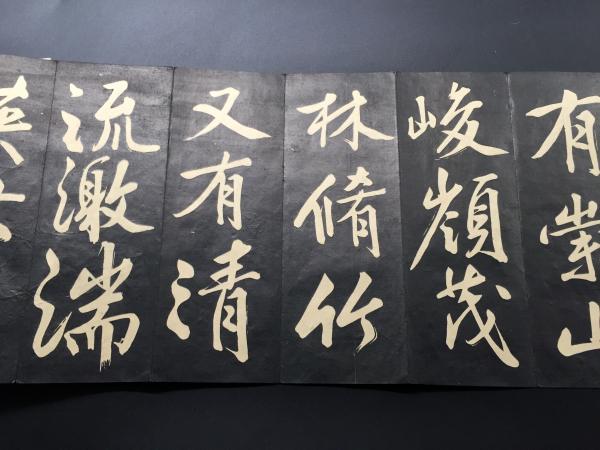 有崇山
峻嶺茂
林脩竹
又有清
流激湍
映左